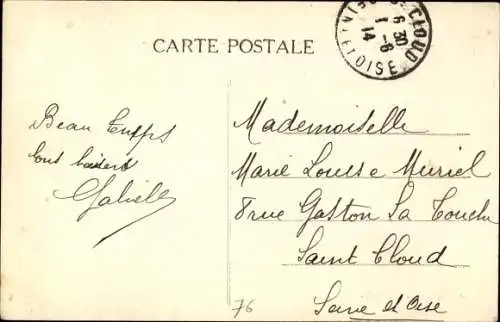 CARTE POSTALE
St CLOUD
6 30
1 - 6
14
SEINE ET OISE
Beau Temps
bons baisers
Gabrielle
Mademoiselle
Marie Louise Muriel
8 rue Gaston La Touche
Saint Cloud
Seine et Oise
76